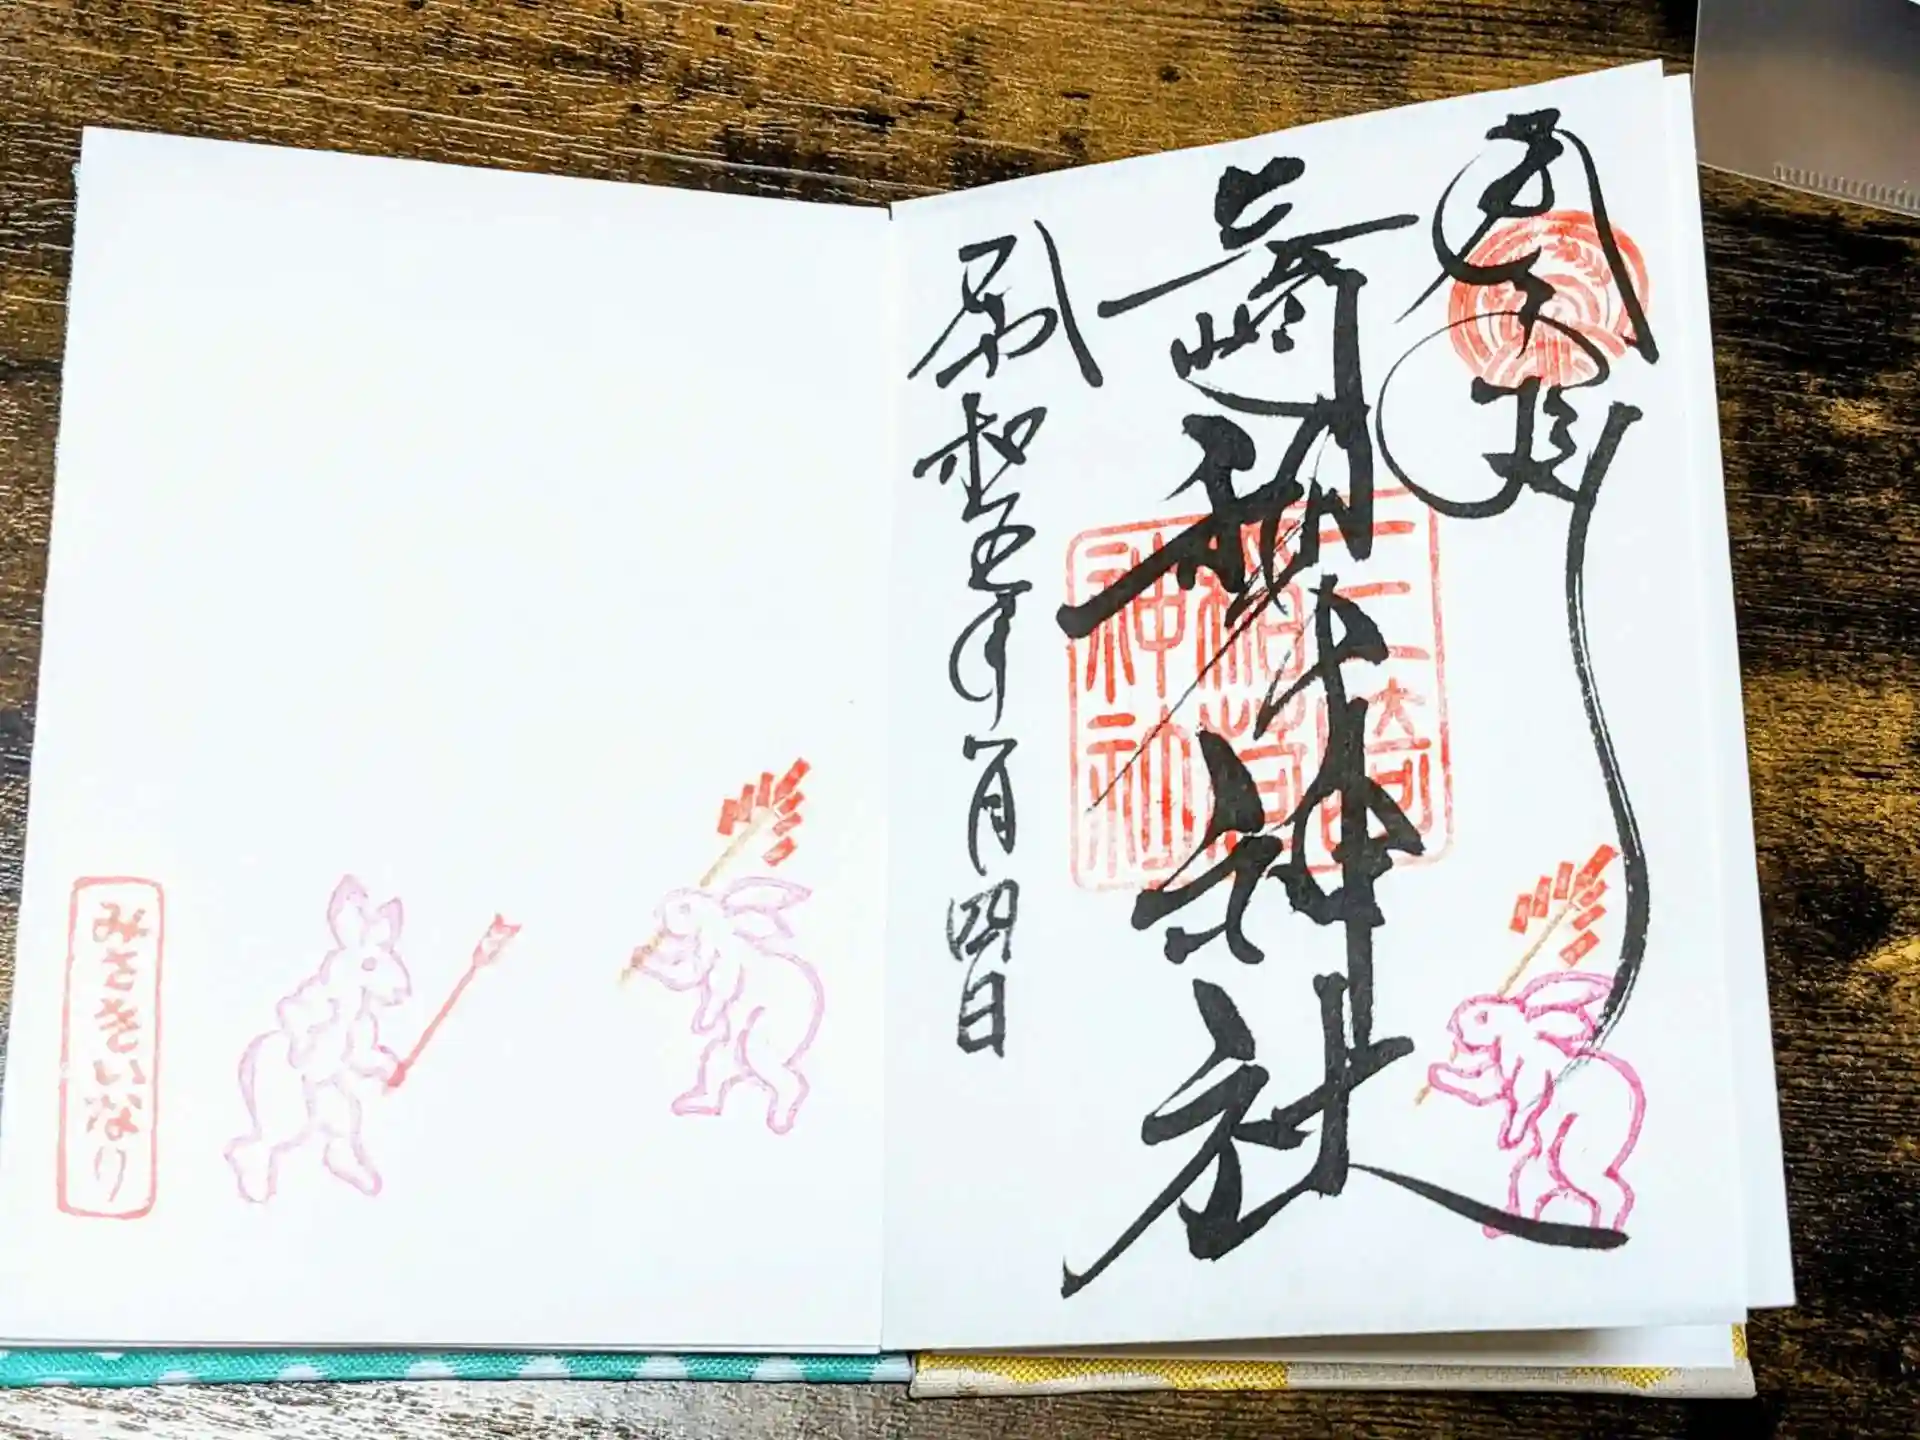 三崎稲荷神社
三崎
稲荷
神社
和五年一月四日
みさきいなり